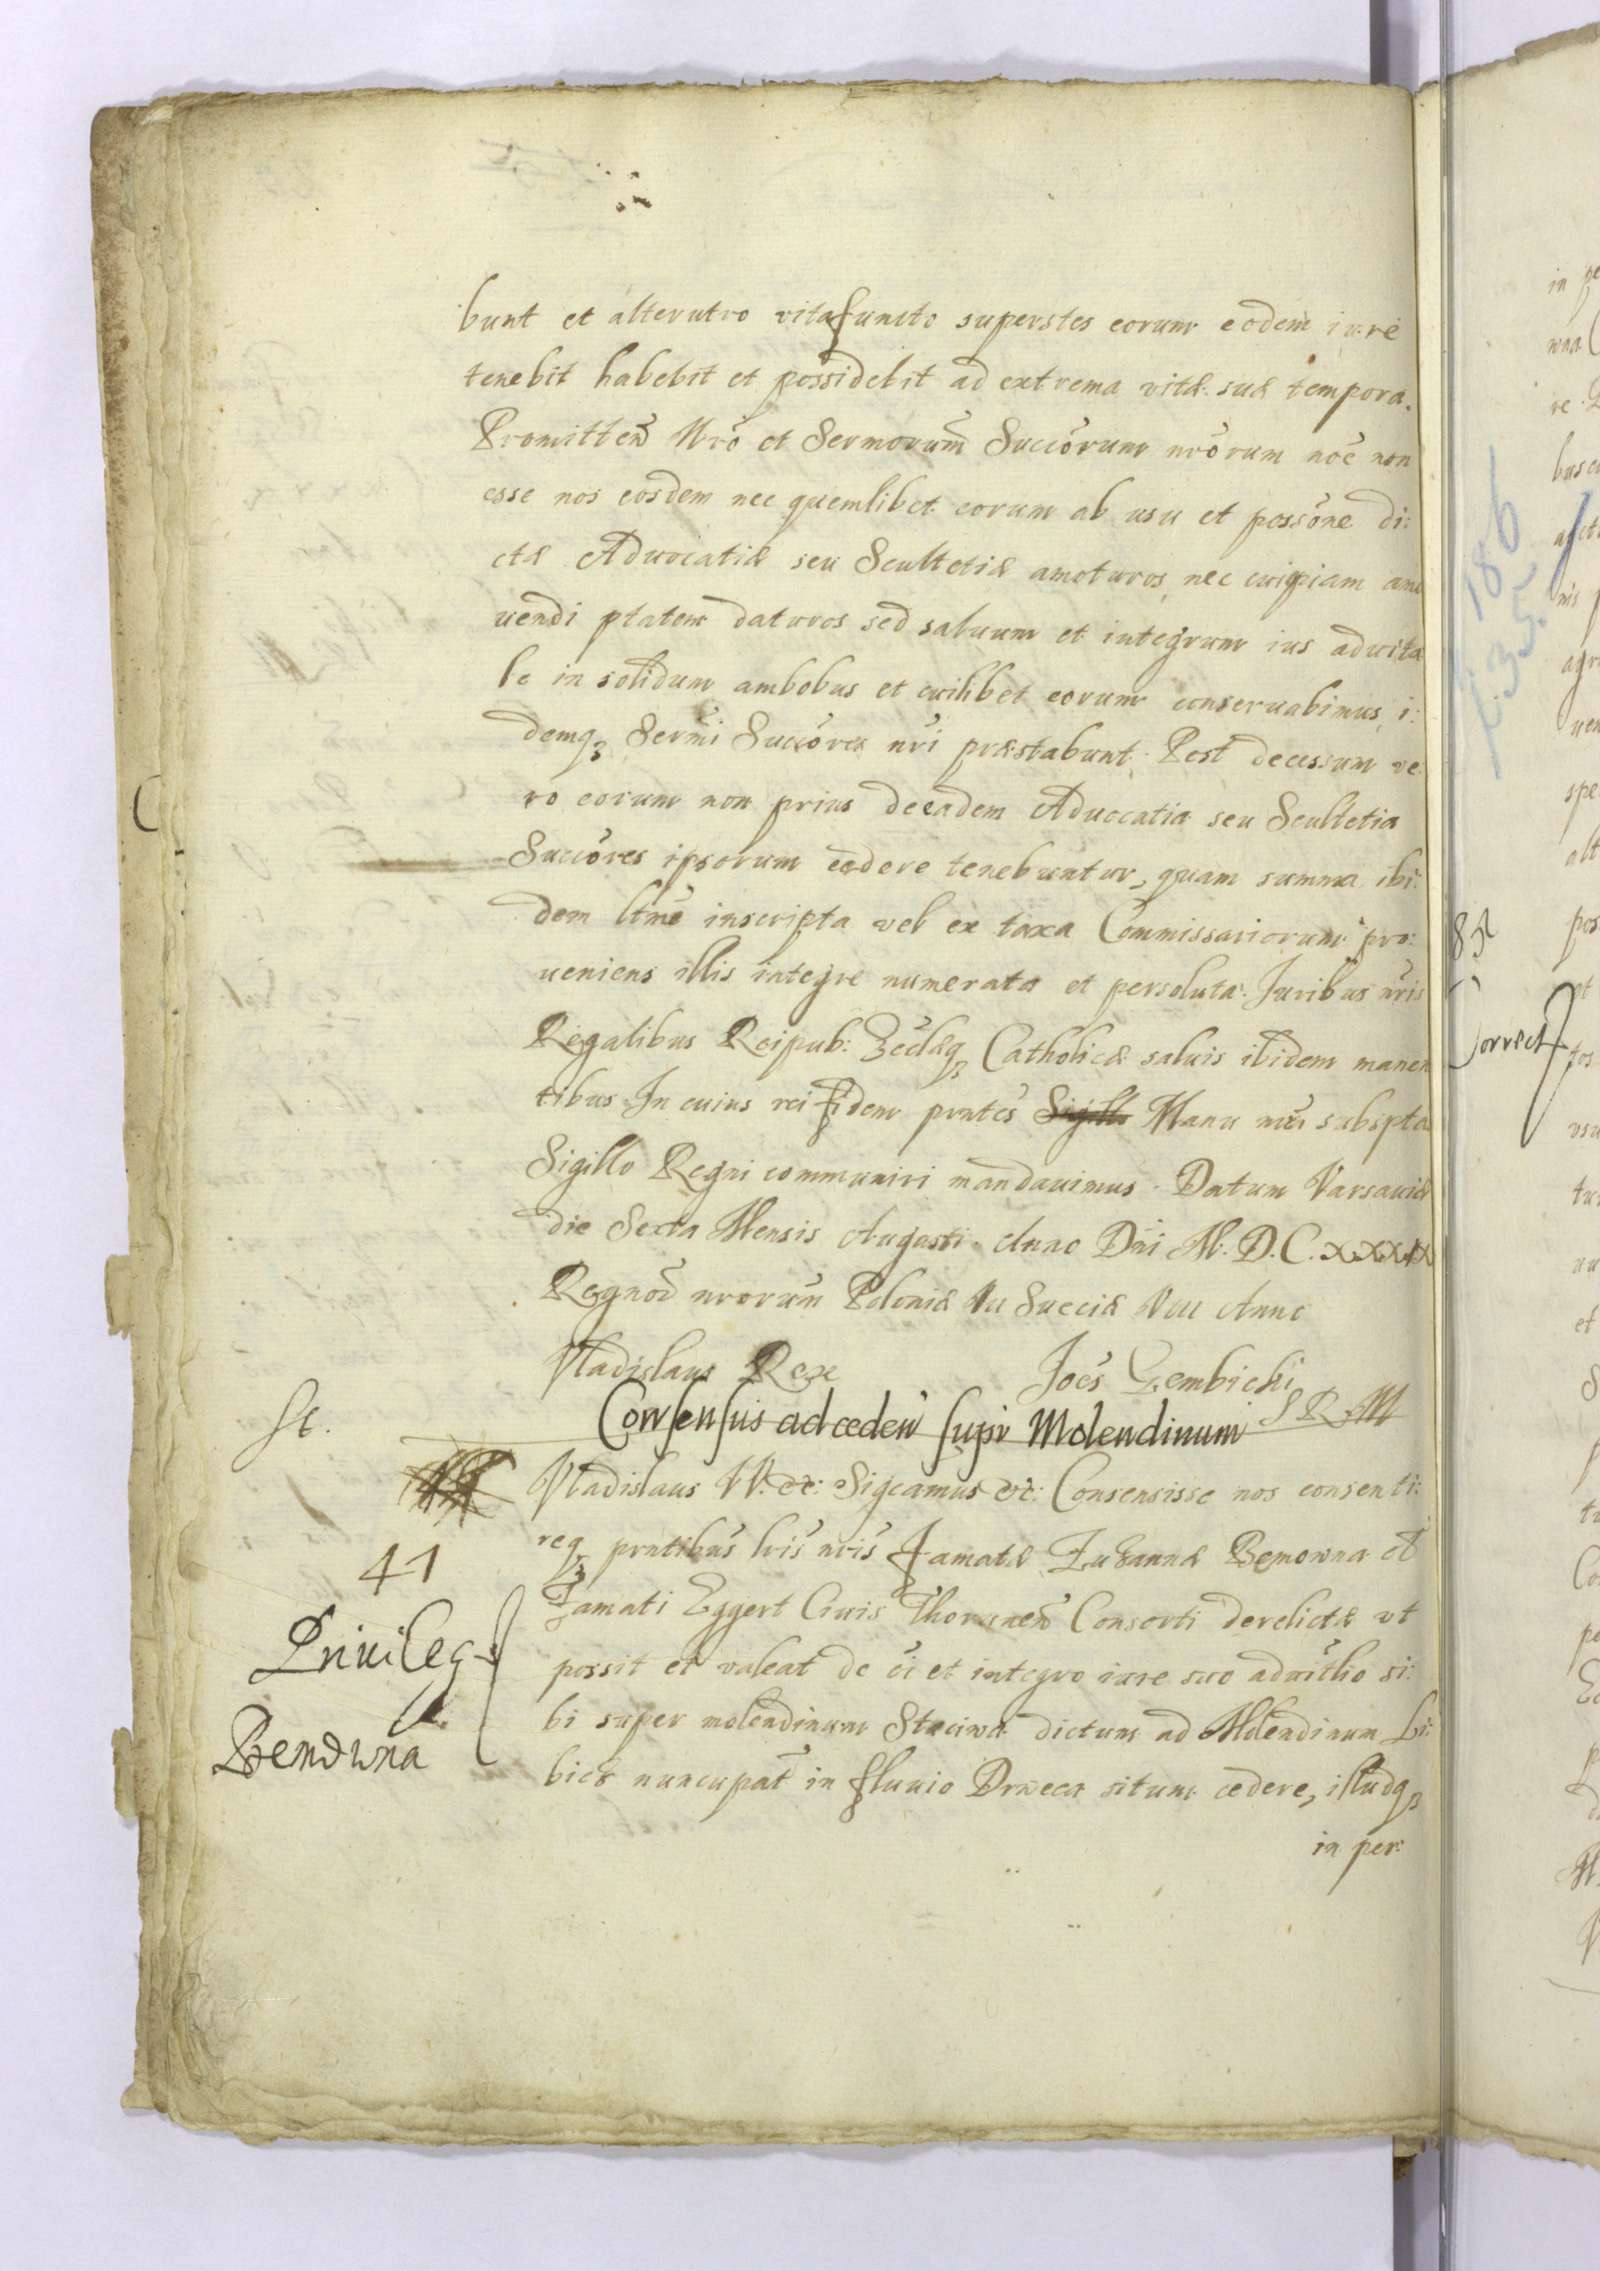 bunt et alterutro vitafuncto superstes eorum eodem iure
tenebit habebit et possidebit ad extrema vitæ suæ tempora.
Promitten Nro et Sermorum Succorum nrorum noe non
esse nos eosdem nec quemlibet eorum ab usu et possone di:
ctæ Aduocatiæ seu Scultetiæ amoturos, nec cuipiam amo
uendi ptatem daturos sed saluum et integrum ius aduita
le in solidum ambobus et cuilibet eorum conseruabimus, i:
demq Sermi Succores nri præstabunt. Post decessum ve:
ro eorum non prius de eadem Aduocatia seu Scultetia
Succores ipsorum cedere tenebuntur, quam summa ibi:
dem ltme inscripta vel ex taxa Commissariorum pro:
ueniens illis integre numerata et persoluta. Juribus nris
Regalibus Reipub: Ecclæq Catholicæ saluis ibidem manen
tibus. In cuius rei fidem pntes Sigillo Manu nra subspta
Sigillo Regni communiri mandauimus. Datum Varsauiæ
die Sexta Mensis Augusti. Anno Dni M. D. C. XXXIX
Regnor nrorum Poloniæ Vii Sueciæ Viii Anno
Vladislaus Rex Joes Gembicki
S R M
St. Consensus ad ceden super Molendinum
Vladislaus IV. etc: Sigcamus etc: Consensisse nos consenti:
req pntibus lris nris Famatæ Zuzannæ Bemowna et
41
Famati Eggert Ciuis Thorunen Consorti derelictæ vt
Priuileg
possit et valeat de oi et integro iure suo aduitlio si:
bi super molendinum Staciwa dictum ad Molendinum Lu:
Bemowna
bicz nuncupat in fluuio Drweca situm cedere, illudq
in per:
186
85
Correct